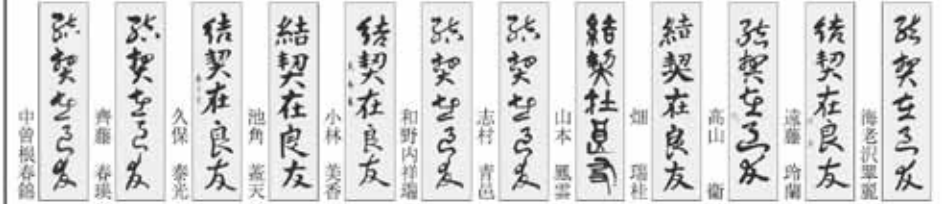 結契在良友
海老沢翠麗
結契在良友
遠藤 玲蘭
結契在良友
高山 衞
結契在良友
畑 瑞桂
結契在良友
山本 鳳雲
結契在良友
志村 青邑
結契在良友
和野内祥瑞
結契在良友
小林 美香
結契在良友
池角 蒼天
結契在良友
久保 泰光
結契在良友
齊藤 春瑛
結契在良友
中曽根春錦